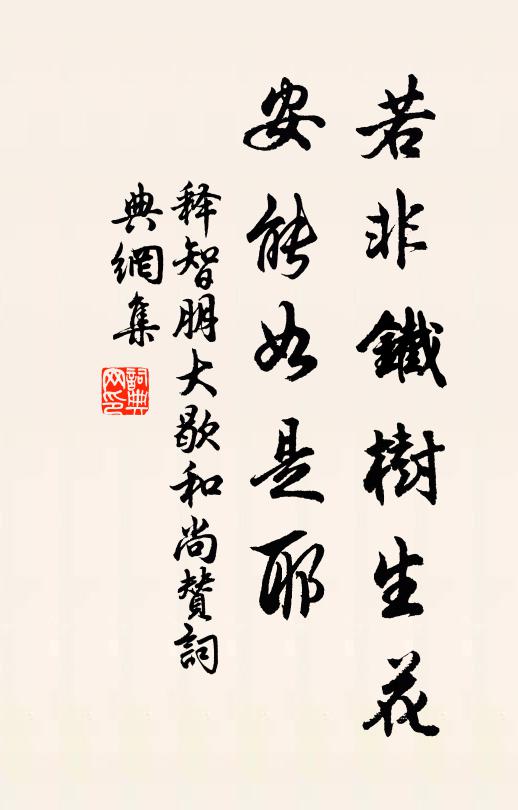 若非鐵樹生花
安能如是耶
释智朋大歇和尚赞詞
典網集
詞典网印